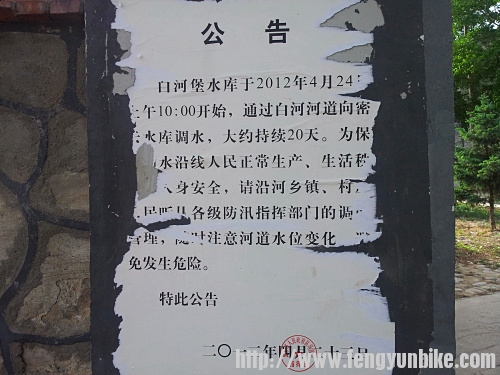 公告
白河堡水库于2012年4月24
上午10:00开始，通过白河河道向密
水库调水，大约持续20天。为保
水沿线人民正常生产、生活秩
身安全，请沿河乡镇、村
民听从各级防汛指挥部门的调
管理，随时注意河道水位变化
免发生危险。
特此公告
二〇一二年四月二十三日
http://www.fengyunbike.com